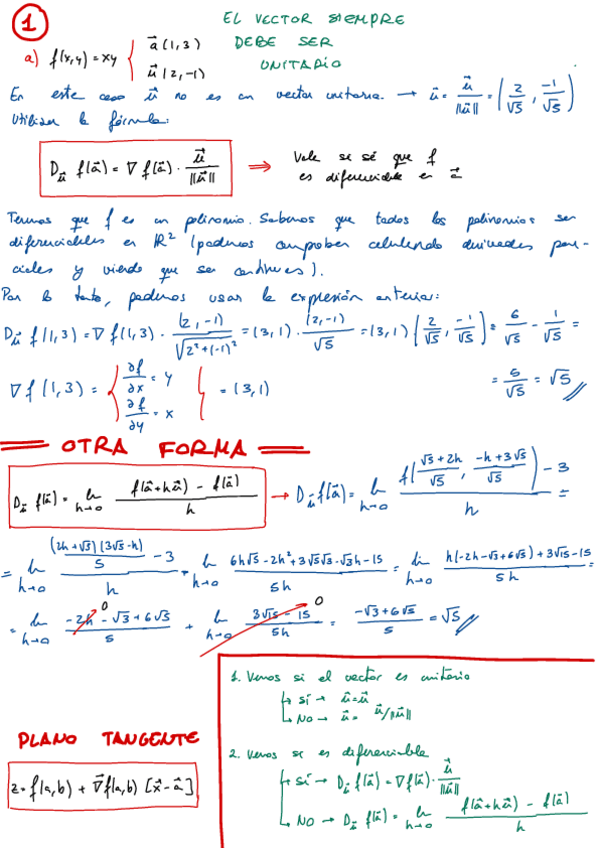 1
EL VECTOR SIEMPRE
DEBE SER
UNITARIO
a) f(x,y) = xy { a⃗ (1,3)
u⃗ (2,-1)
En este caso u⃗ no es un vector unitario. → û = u⃗/||u⃗|| = (2/√5, -1/√5)
Utilizar la fórmula:
D_û f(a⃗) = ∇f(a⃗) · u⃗/||u⃗|| ⇒ Vale si sé que f
es diferenciable en a⃗
Tenemos que f es un polinomio. Sabemos que todos los polinomios son
diferenciables en ℝ² (podemos comprobar calculando derivadas par-
ciales y viendo que son continuas).
Por lo tanto, podemos usar la expresión anterior:
D_û f(1,3) = ∇f(1,3) · (2,-1)/√(2²+(-1)²) = (3,1) · (2,-1)/√5 = (3,1) (2/√5, -1/√5) = 6/√5 - 1/√5 =
∇f(1,3) = { ∂f/∂x = y
∂f/∂y = x } = (3,1)
= 5/√5 = √5
OTRA FORMA
D_û f(a⃗) = lim h→0 (f(a⃗+hu⃗) - f(a⃗))/h → D_û f(a⃗) = lim h→0 (f((√5+2h)/√5, (-h+3√5)/√5) - 3)/h =
= lim h→0 ((2h+√5)(3√5-h)/5 - 3)/h = lim h→0 (6h√5 - 2h² + 3√5√5 - √3h - 15)/5h = lim h→0 (h(-2h-√3+6√5) + 3√15 - 15)/5h
= lim h→0 (-2h - √3 + 6√5)/5 + lim h→0 (3√15 - 15)/5h = (-√3 + 6√5)/5 = √5
0
0
1. Vemos si el vector es unitario
↳ Sí → û = u⃗
↳ NO → û = u⃗/||u⃗||
PLANO TANGENTE
z = f(a,b) + ∇f(a,b) [x⃗ - a⃗]
2. Vemos si es diferenciable
↳ Sí → D_û f(a⃗) = ∇f(a⃗) · u⃗/||u⃗||
↳ NO → D_û f(a⃗) = lim h→0 (f(a⃗+hu⃗) - f(a⃗))/h